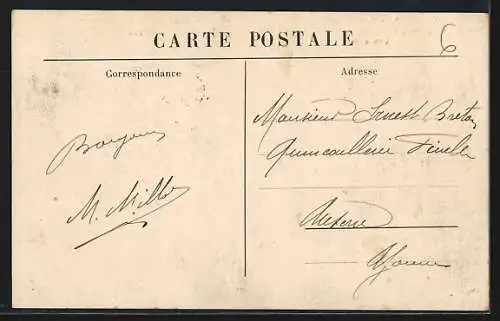 CARTE POSTALE
6
Correspondance
Adresse
Bonjour
M. Millot
Monsieur Ernest Breton
Quincaillerie
Auxerre
Yonne